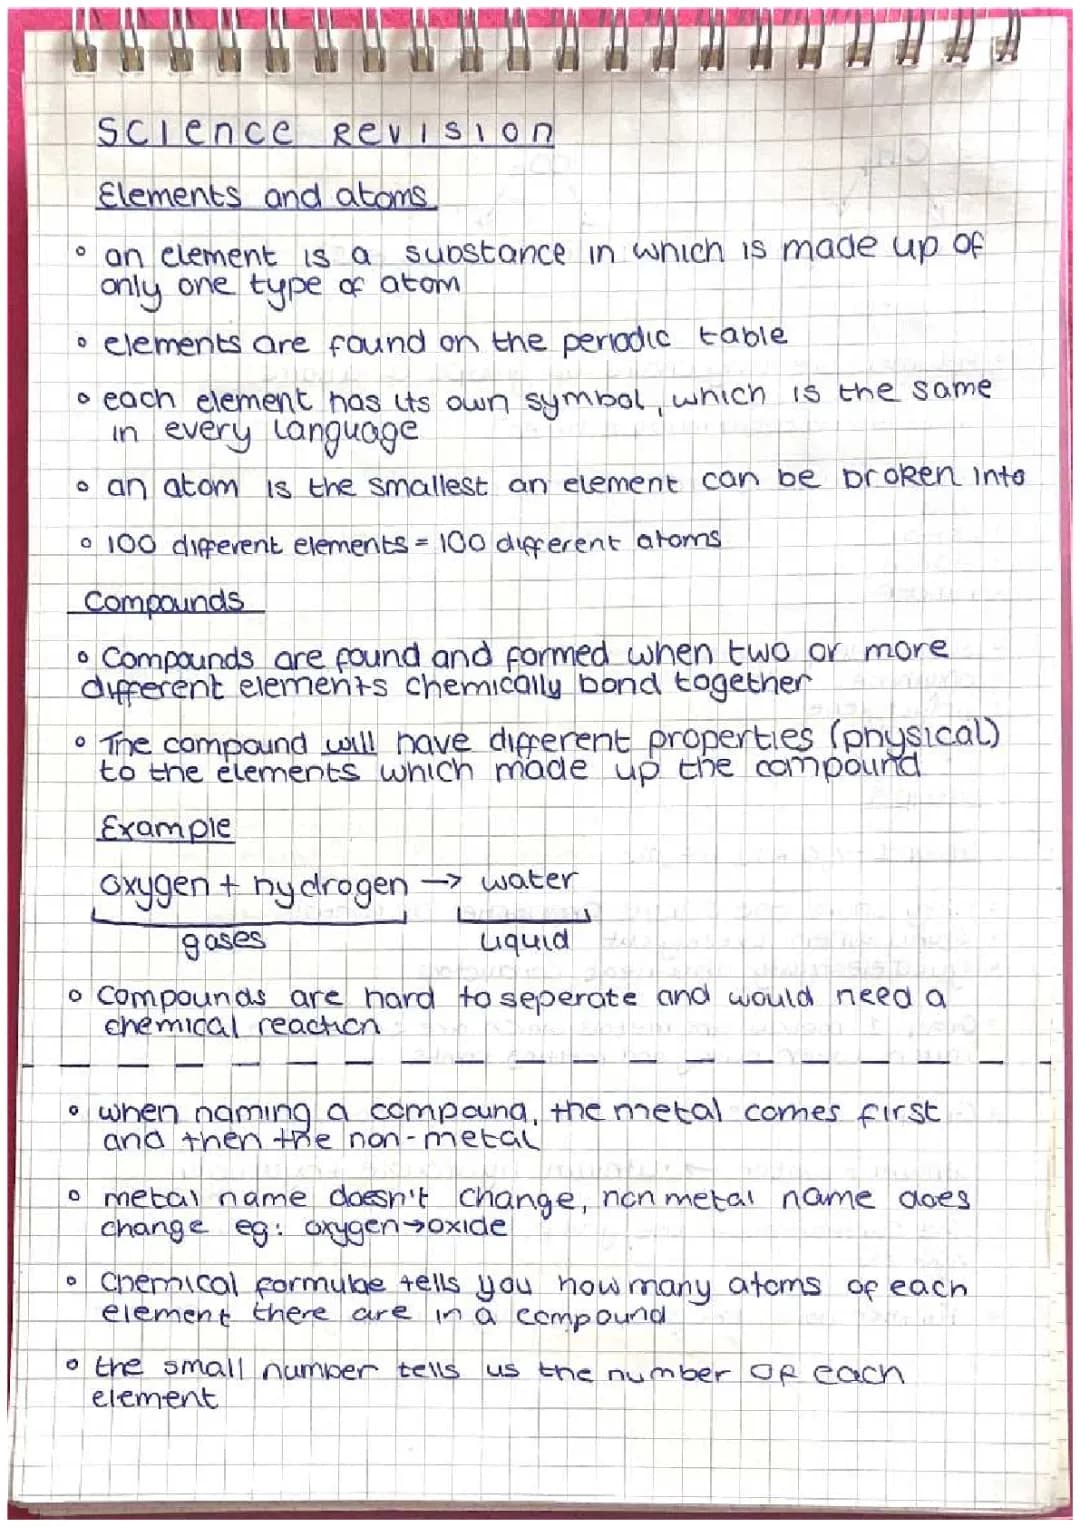 Science Revision
Elements and atoms
° an element is a substance in which is made up of
only one type of atom
° elements are found on the periodic table
° each element has its own symbol, which is the same
in every language
° an atom is the smallest an element can be broken into
° 100 different elements = 100 different atoms
Compounds
° Compounds are found and formed when two or more
different elements chemically bond together
° The compound will have different properties (physical)
to the elements which made up the compound
Example
oxygen + hydrogen → water
gases liquid
° Compounds are hard to seperate and would need a
chemical reaction
° when naming a compound, the metal comes first
and then the non-metal
° metal name doesn't change, non metal name does
change eg: oxygen→oxide
° Chemical formulae tells you how many atoms of each
element there are in a compound
° the small number tells us the number of each
element